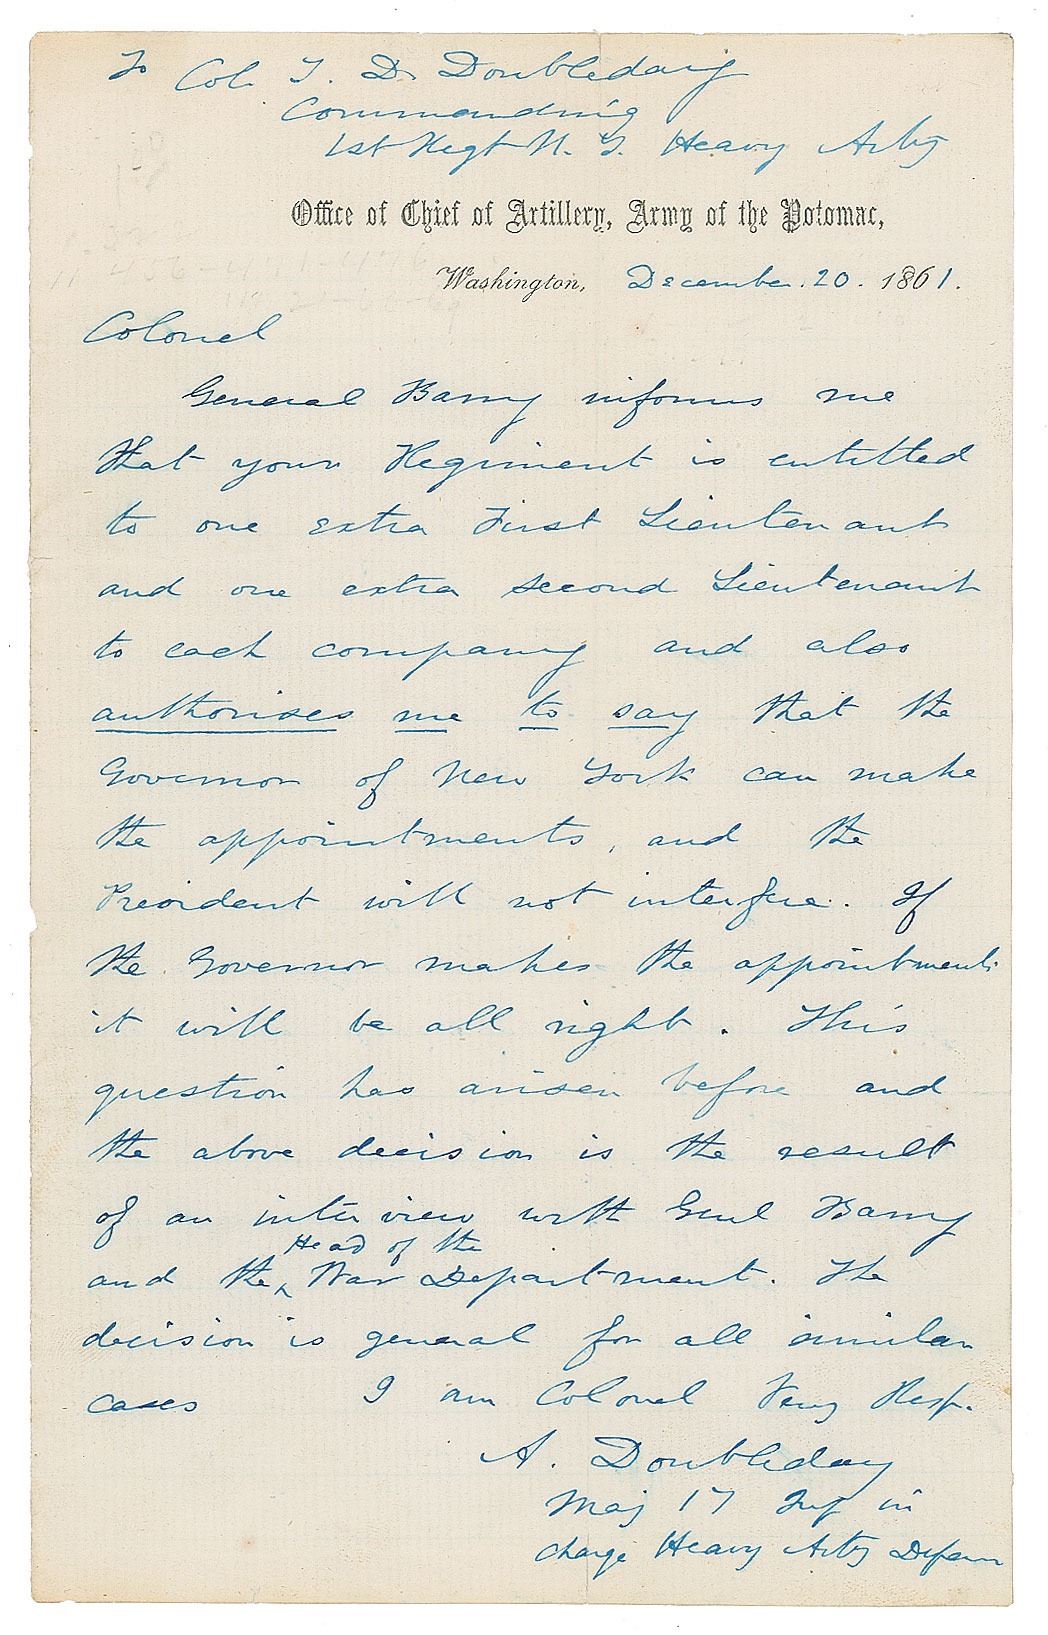 To Col. T. D. Doubleday
Commanding
1st Regt N. Y. Heavy Arty
Office of Chief of Artillery, Army of the Potomac,
Washington, December. 20. 1861.
Colonel
General Barry informs me
that your Regiment is entitled
to one extra First Lieutenant
and one extra second Lieutenant
to each company and also
authorises me to say that the
Governor of New York can make
the appointments, and the
President will not interfere. If
the Governor makes the appointments
it will be all right. This
question has arisen before and
the above decision is the result
of an interview with Genl Barry
Head of the
and the ^ War Department. The
decision is general for all similar
cases I am Colonel Very Resp.
A. Doubleday
Maj 17 Inf in
charge Heavy Arty Defenc